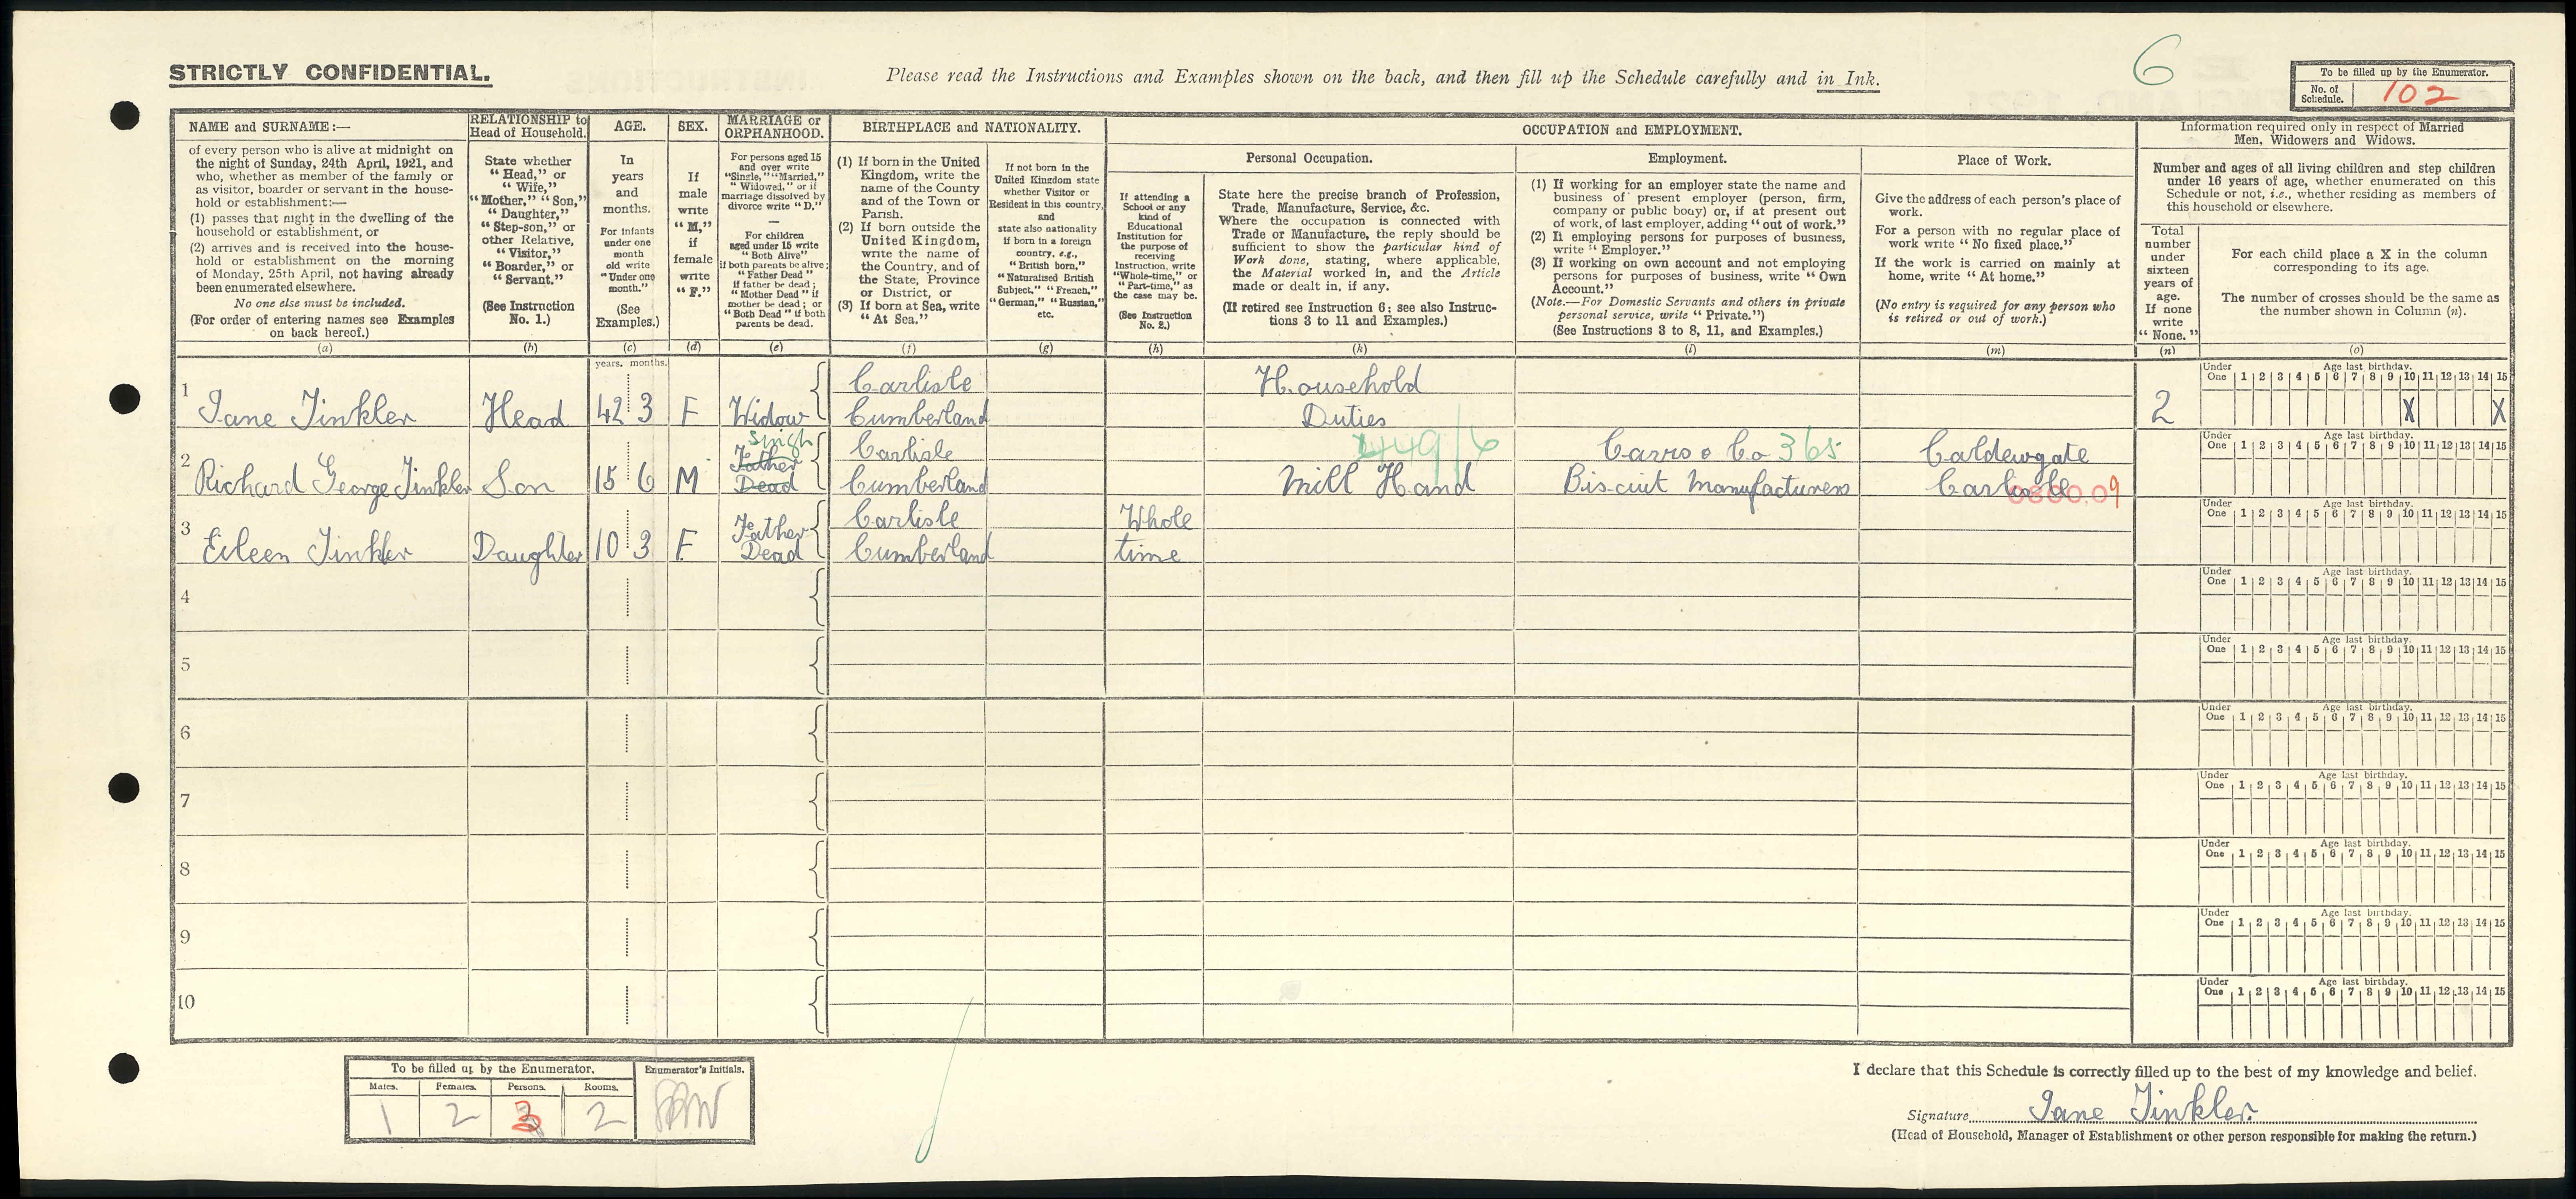 6
STRICTLY CONFIDENTIAL.
Please read the Instructions and Examples shown on the back, and then fill up the Schedule carefully and in Ink.
To be filled up by the Enumerator.
No. of Schedule. 102
NAME and SURNAME:—
of every person who is alive at midnight on
the night of Sunday, 24th April, 1921, and
who, whether as member of the family or
as visitor, boarder or servant in the house-
hold or establishment:—
(1) passes that night in the dwelling of the
household or establishment, or
(2) arrives and is received into the house-
hold or establishment on the morning
of Monday, 25th April, not having already
been enumerated elsewhere.
No one else must be included.
(For order of entering names see Examples
on back hereof.)
(a)
RELATIONSHIP to
Head of Household.
State whether
"Head," or
"Wife,"
"Mother," "Son,"
"Daughter,"
"Step-son," or
other Relative,
"Visitor,"
"Boarder," or
"Servant."
(See Instruction
No. 1.)
(b)
AGE.
In
years
and
months.
For infants
under one
month
old write
"Under one
month."
(See
Examples.)
(c)
SEX.
If
male
write
"M,"
if
female
write
"F."
(d)
MARRIAGE or
ORPHANHOOD.
For persons aged 15
and over write
"Single," "Married,"
"Widowed," or if
marriage dissolved by
divorce write "D."
—
For children
aged under 15 write
"Both Alive"
if both parents be alive;
"Father Dead"
if father be dead;
"Mother Dead" if
mother be dead; or
"Both Dead" if both
parents be dead.
(e)
BIRTHPLACE and NATIONALITY.
(1) If born in the United
Kingdom, write the
name of the County
and of the Town or
Parish.
(2) If born outside the
United Kingdom,
write the name of
the Country, and of
the State, Province
or District, or
(3) If born at Sea, write
"At Sea."
(f)
If not born in the
United Kingdom state
whether Visitor or
Resident in this country,
and
state also nationality
if born in a foreign
country, e.g.,
"British born,"
"Naturalised British
Subject," "French,"
"German," "Russian,"
etc.
(g)
OCCUPATION and EMPLOYMENT.
If attending a
School or any
kind of
Educational
Institution for
the purpose of
receiving
Instruction, write
"Whole-time," or
"Part-time," as
the case may be.
(See Instruction
No. 2.)
(h)
Personal Occupation.
State here the precise branch of Profession,
Trade, Manufacture, Service, &c.
Where the occupation is connected with
Trade or Manufacture, the reply should be
sufficient to show the particular kind of
Work done, stating, where applicable,
the Material worked in, and the Article
made or dealt in, if any.
(If retired see Instruction 6; see also Instruc-
tions 3 to 11 and Examples.)
(k)
Employment.
(1) If working for an employer state the name and
business of present employer (person, firm,
company or public body) or, if at present out
of work, of last employer, adding "out of work."
(2) If employing persons for purposes of business,
write "Employer."
(3) If working on own account and not employing
persons for purposes of business, write "Own
Account."
(Note.—For Domestic Servants and others in private
personal service, write "Private.")
(See Instructions 3 to 8, 11, and Examples.)
(l)
Place of Work.
Give the address of each person's place of
work.
For a person with no regular place of
work write "No fixed place."
If the work is carried on mainly at
home, write "At home."
(No entry is required for any person who
is retired or out of work.)
(m)
Information required only in respect of Married
Men, Widowers and Widows.
Number and ages of all living children and step children
under 16 years of age, whether enumerated on this
Schedule or not, i.e., whether residing as members of
this household or elsewhere.
Total
number
under
sixteen
years of
age.
If none
write
"None."
(n)
For each child place a X in the column
corresponding to its age.
The number of crosses should be the same as
the number shown in Column (n).
(o)
years. months.
Under One Age last birthday. 1 2 3 4 5 6 7 8 9 10 11 12 13 14 15
1 Jane Tinkler Head 42 3 F Widow Carlisle Cumberland Household Duties 2 X X
Under One Age last birthday. 1 2 3 4 5 6 7 8 9 10 11 12 13 14 15
2 Richard George Tinkler Son 15 6 M Single Father Dead Carlisle Cumberland 449/6 Mill Hand Carrs & Co 365 Biscuit Manufacturers Caldewgate Carlisle
Under One Age last birthday. 1 2 3 4 5 6 7 8 9 10 11 12 13 14 15
3 Eileen Tinkler Daughter 10 3 F. Father Dead Carlisle Cumberland Whole time
Under One Age last birthday. 1 2 3 4 5 6 7 8 9 10 11 12 13 14 15
4
Under One Age last birthday. 1 2 3 4 5 6 7 8 9 10 11 12 13 14 15
5
Under One Age last birthday. 1 2 3 4 5 6 7 8 9 10 11 12 13 14 15
6
Under One Age last birthday. 1 2 3 4 5 6 7 8 9 10 11 12 13 14 15
7
Under One Age last birthday. 1 2 3 4 5 6 7 8 9 10 11 12 13 14 15
8
Under One Age last birthday. 1 2 3 4 5 6 7 8 9 10 11 12 13 14 15
9
Under One Age last birthday. 1 2 3 4 5 6 7 8 9 10 11 12 13 14 15
10
To be filled up by the Enumerator.
Males. Females. Persons. Rooms.
1 2 3 2
Enumerator's Initials.
I declare that this Schedule is correctly filled up to the best of my knowledge and belief.
Signature Jane Tinkler.
(Head of Household, Manager of Establishment or other person responsible for making the return.)